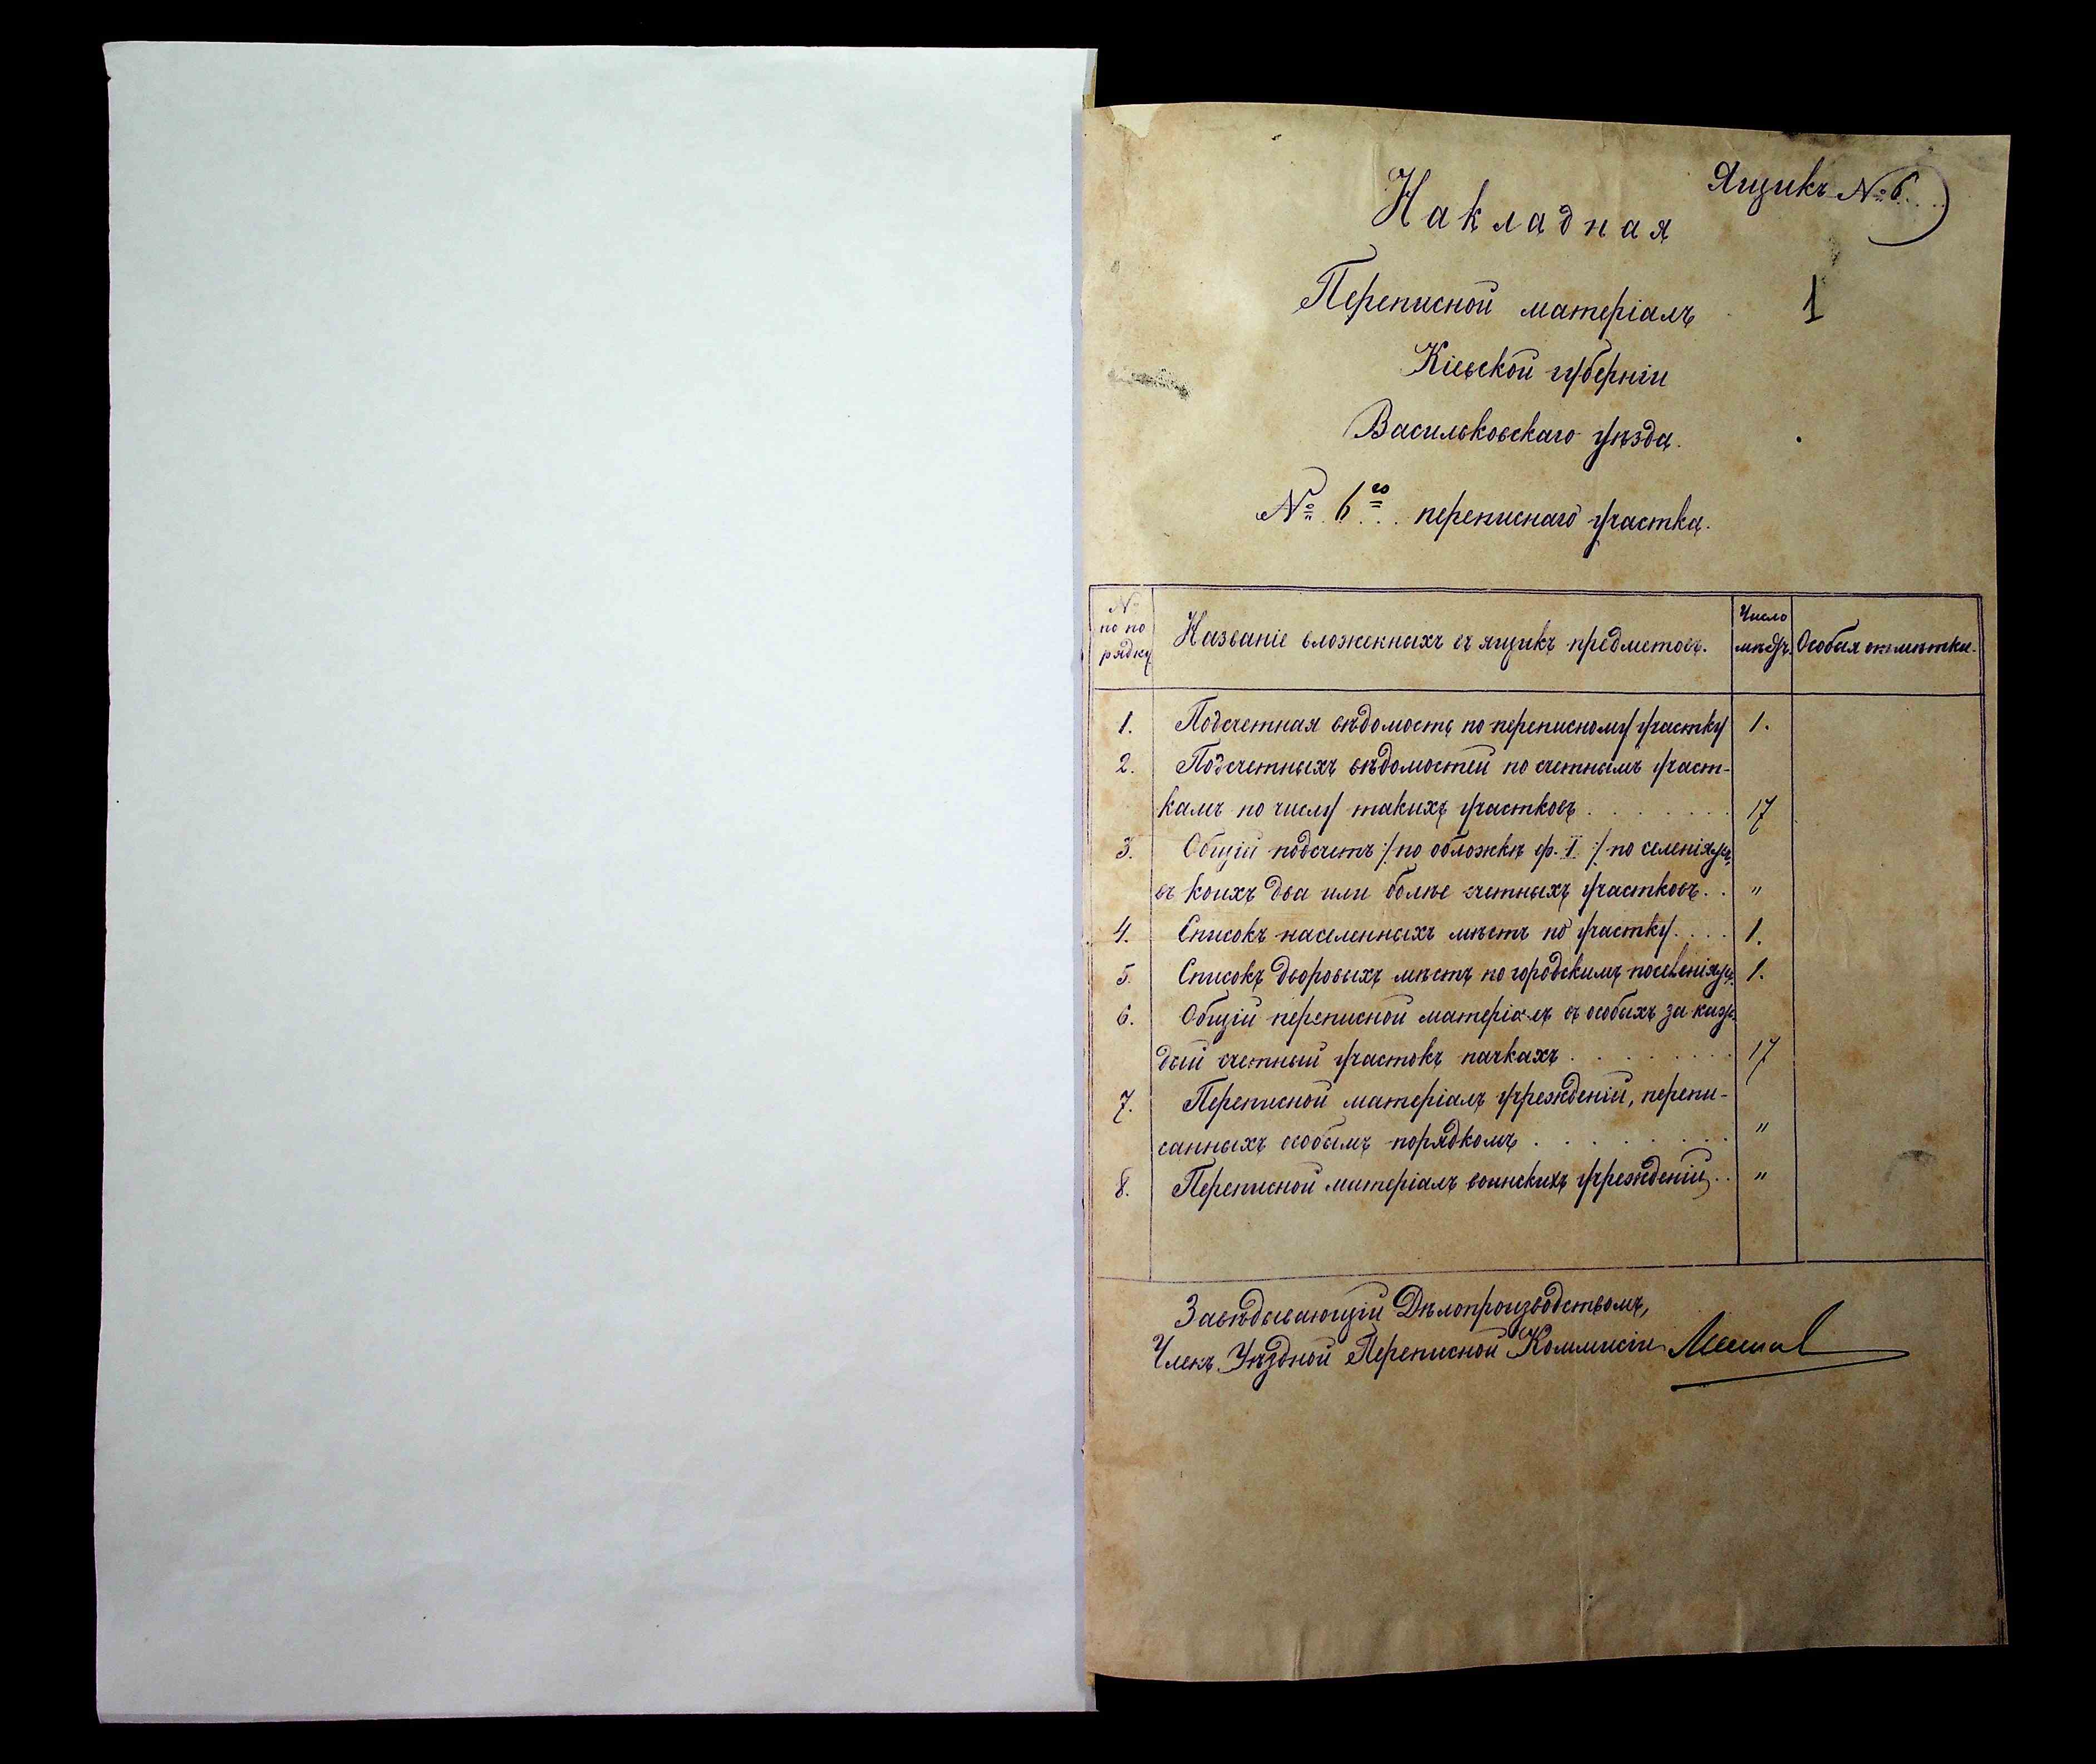 Ящикъ № 6
Накладная
1
Переписной матеріалъ
Кіевской губерніи
Васильковскаго уѣзда.
№ 6го переписнаго участка.
№ по порядку
Названіе вложенныхъ въ ящикъ предметовъ.
Число
Особыя отмѣтки.
1. Подсчетная вѣдомость по переписному участку 1.
2. Подсчетныхъ вѣдомостей по счетнымъ участ-
камъ по числу такихъ участковъ . . . . . . . 17
3. Общій подсчетъ /: по обложкѣ ф. I. :/ по селеніямъ,
въ коихъ два или болѣе счетныхъ участковъ . . "
4. Списокъ населенныхъ мѣстъ по участку . . . . 1.
5. Списокъ дворовыхъ мѣстъ по городскимъ поселеніямъ 1.
6. Общій переписной матеріалъ въ особыхъ за каж-
дый счетный участокъ пачкахъ . . . . . . . . 17
7. Переписной матеріалъ учрежденій, перепи-
санныхъ особымъ порядкомъ . . . . . . . . . "
8. Переписной матеріалъ воинскихъ учрежденій . . "
Завѣдывающій Дѣлопроизводствомъ,
Членъ Уѣздной Переписной Коммисіи